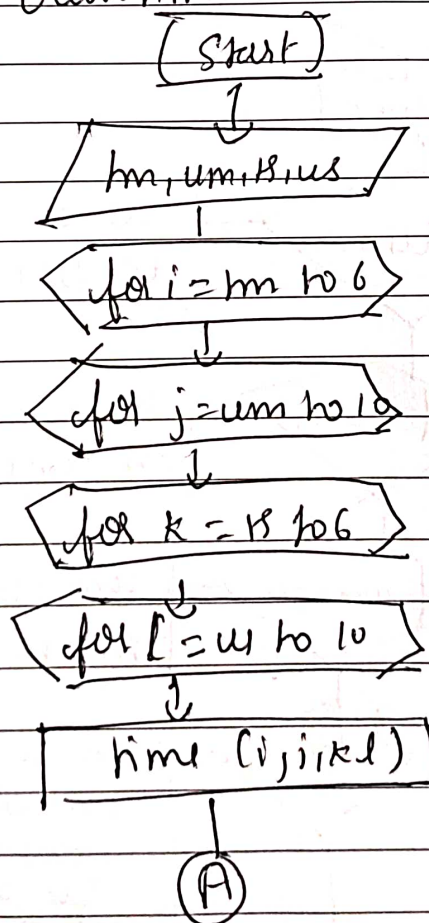 Start
tm, um, ts, us
for i = tm to 6
for j = um to 10
for k = ts to 6
for l = us to 10
time (i, j, k l)
A